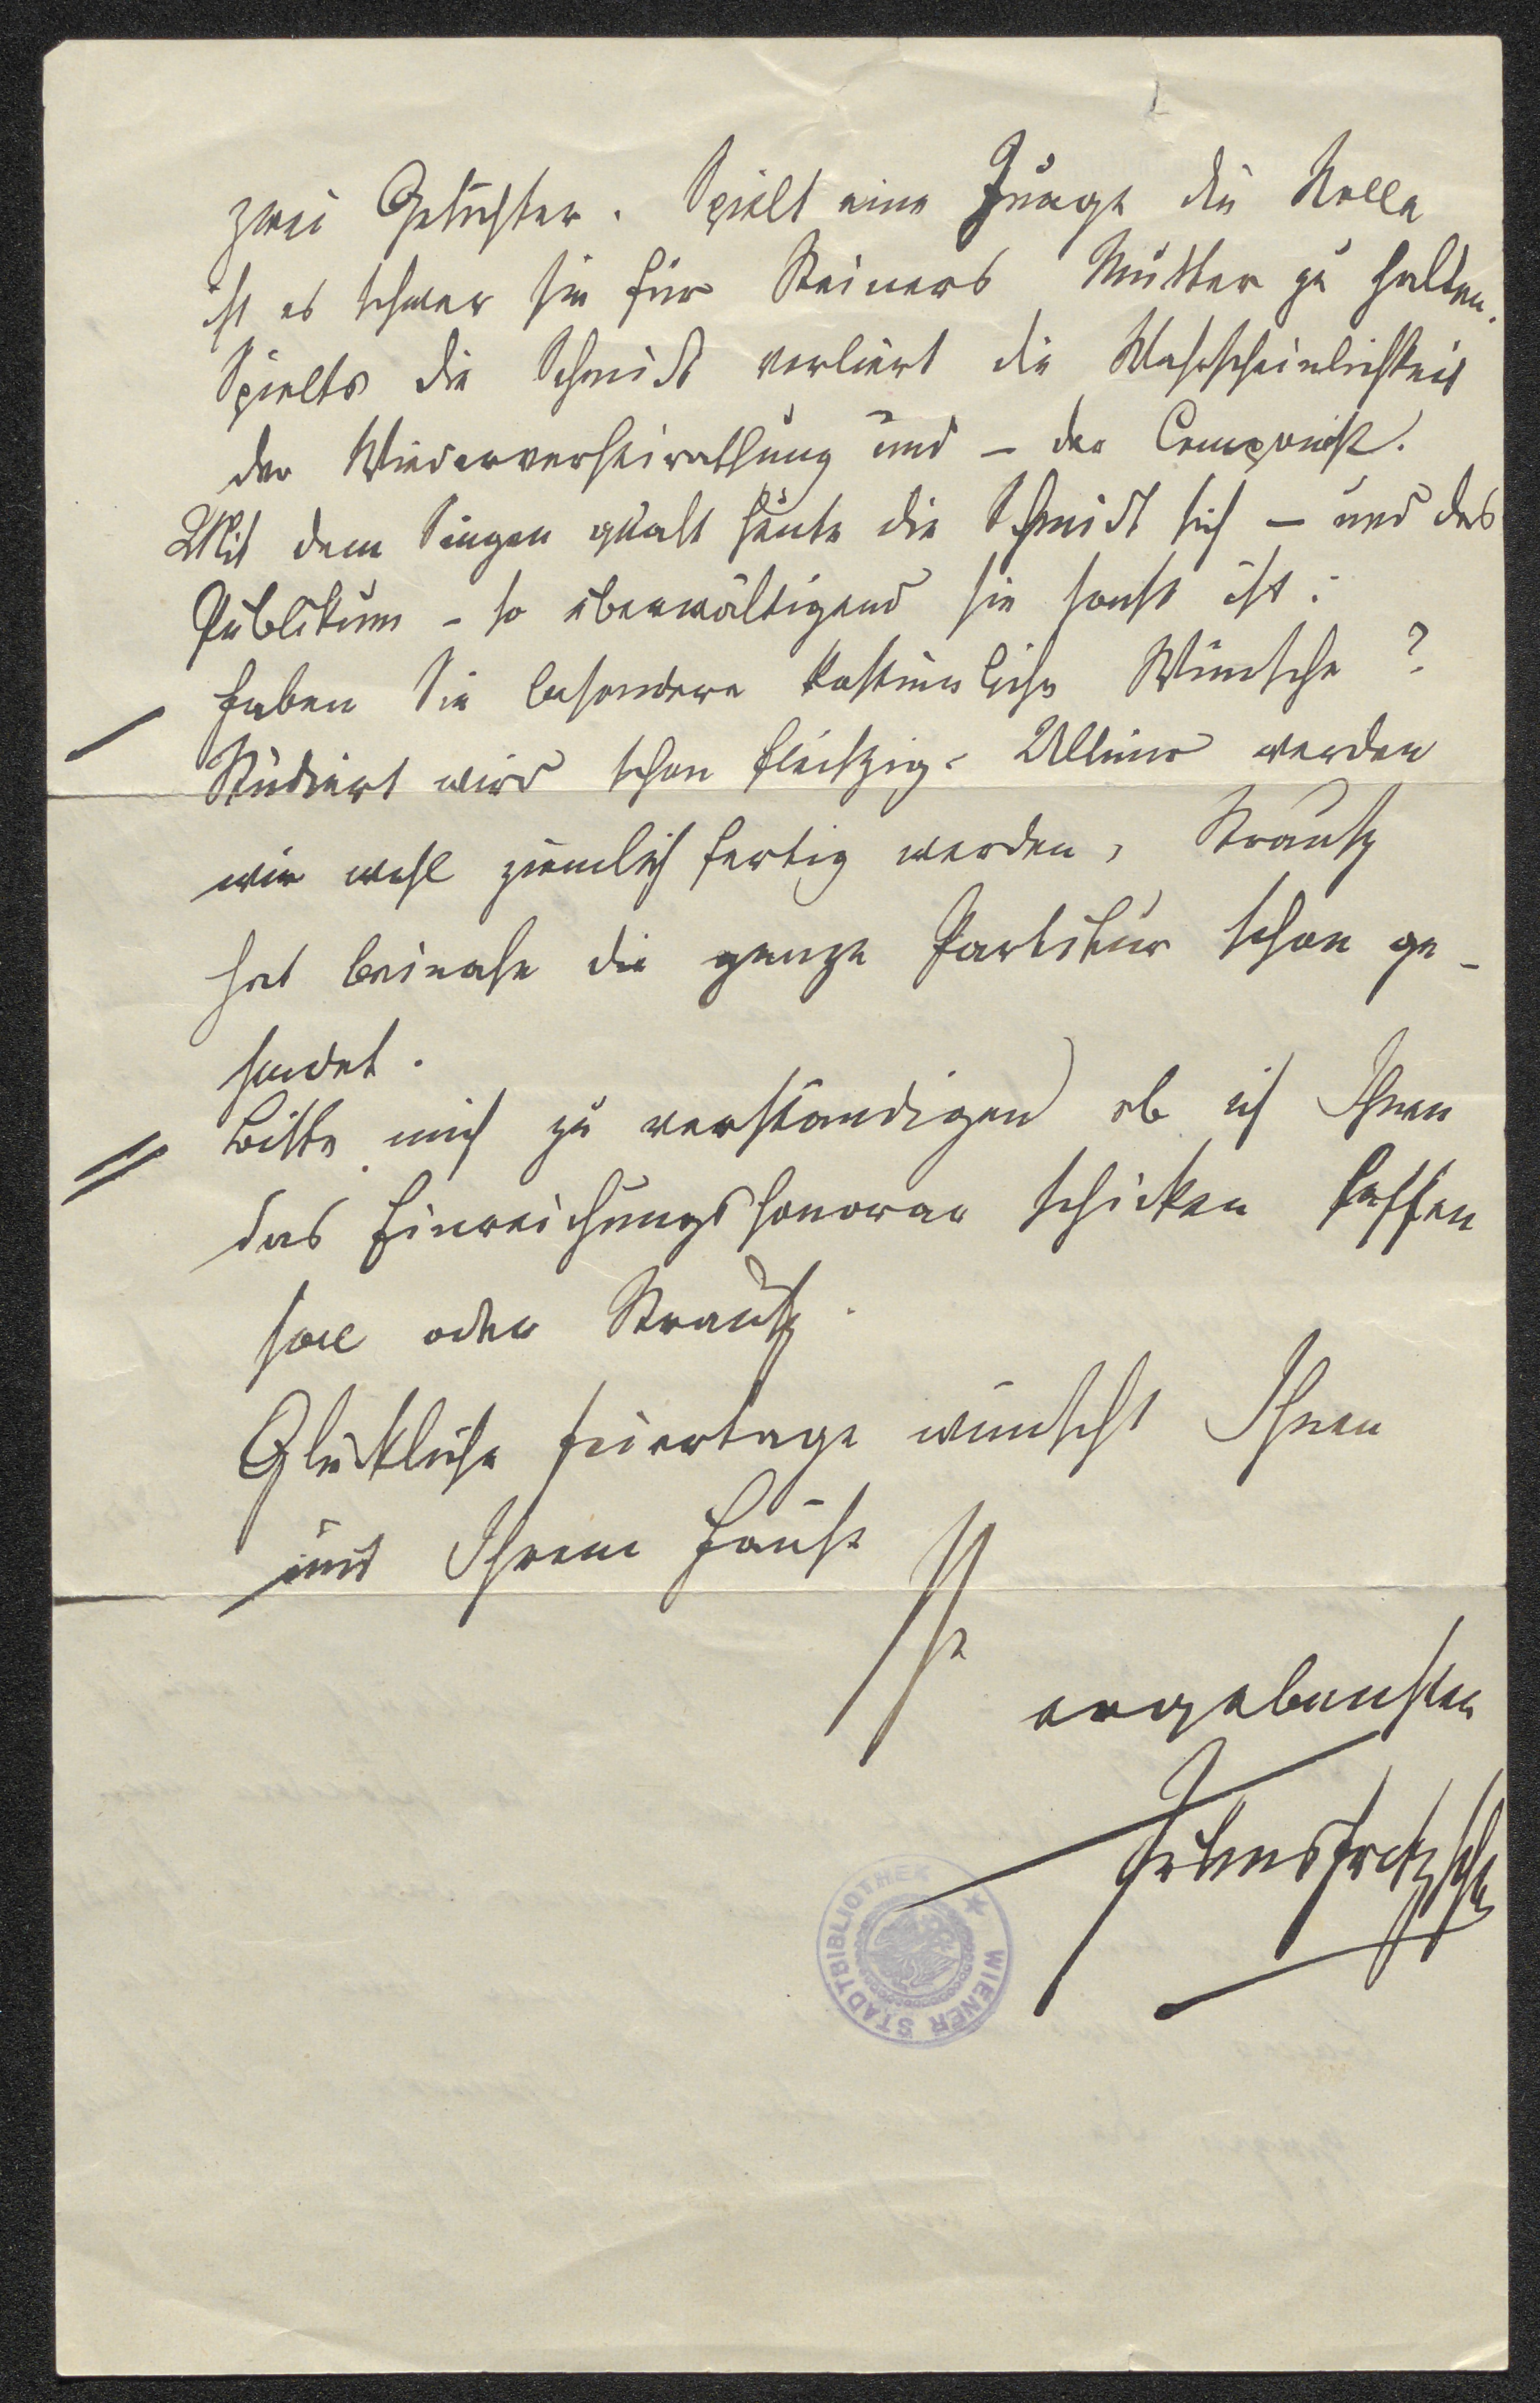 zwei Gesichter. Spielt eine Junge die Rolle
ist es schwer sie für Steiners Mutter zu halten.
Spielts die Schmidt verliert die Wahrscheinlichkeit
der Wiederverheirathung und – der Componist.
Mit dem Singen quält heute die Schmidt sich – und das
Publikum – so überwältigend sie sonst ist.
Haben Sie besondere kostümliche Wünsche?
Studiert wird schon fleißig. Ultimo werden
wir wohl ziemlich fertig werden, Strauß
hat beinahe die ganze Partitur schon ge-
sendet.
Bitte mich zu verständigen ob ich Ihnen
das Einreichungshonorar schicken lassen
soll oder Strauß.
Glückliche Feiertage wünscht Ihnen
und Ihrem Hause
Ihr
ergebenster
Fritzsche
WIENER STADTBIBLIOTHEK